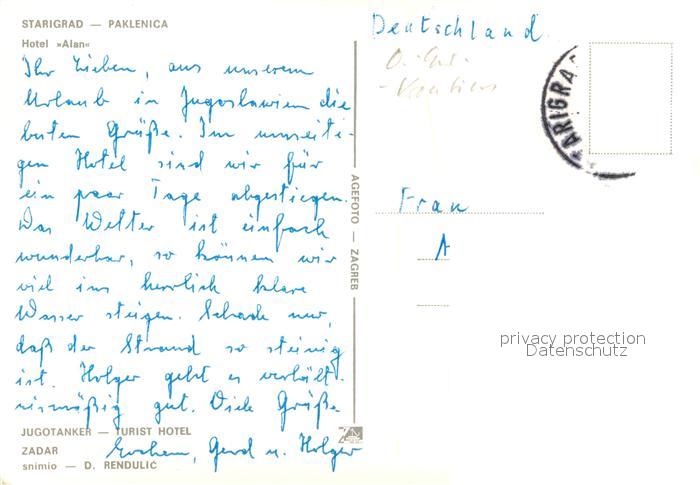 STARIGRAD — PAKLENICA
Hotel »Alan«
Ihr Lieben, aus unserem
Urlaub in Jugoslawien die
besten Grüße. Im umseiti-
gen Hotel sind wir für
ein paar Tage abgestiegen.
Das Wetter ist einfach
wunderbar, so können wir
viel ins herrlich klare
Wasser steigen. Schade nur,
daß der Strand so steinig
ist. Holger geht es verhält-
nismäßig gut. Viele Grüße
Gerd u. Holger
JUGOTANKER — TURIST HOTEL
ZADAR
snimio — D. RENDULIĆ
AGEFOTO — ZAGREB
Deutschland
ARIGRA
Frau
A
privacy protection
Datenschutz